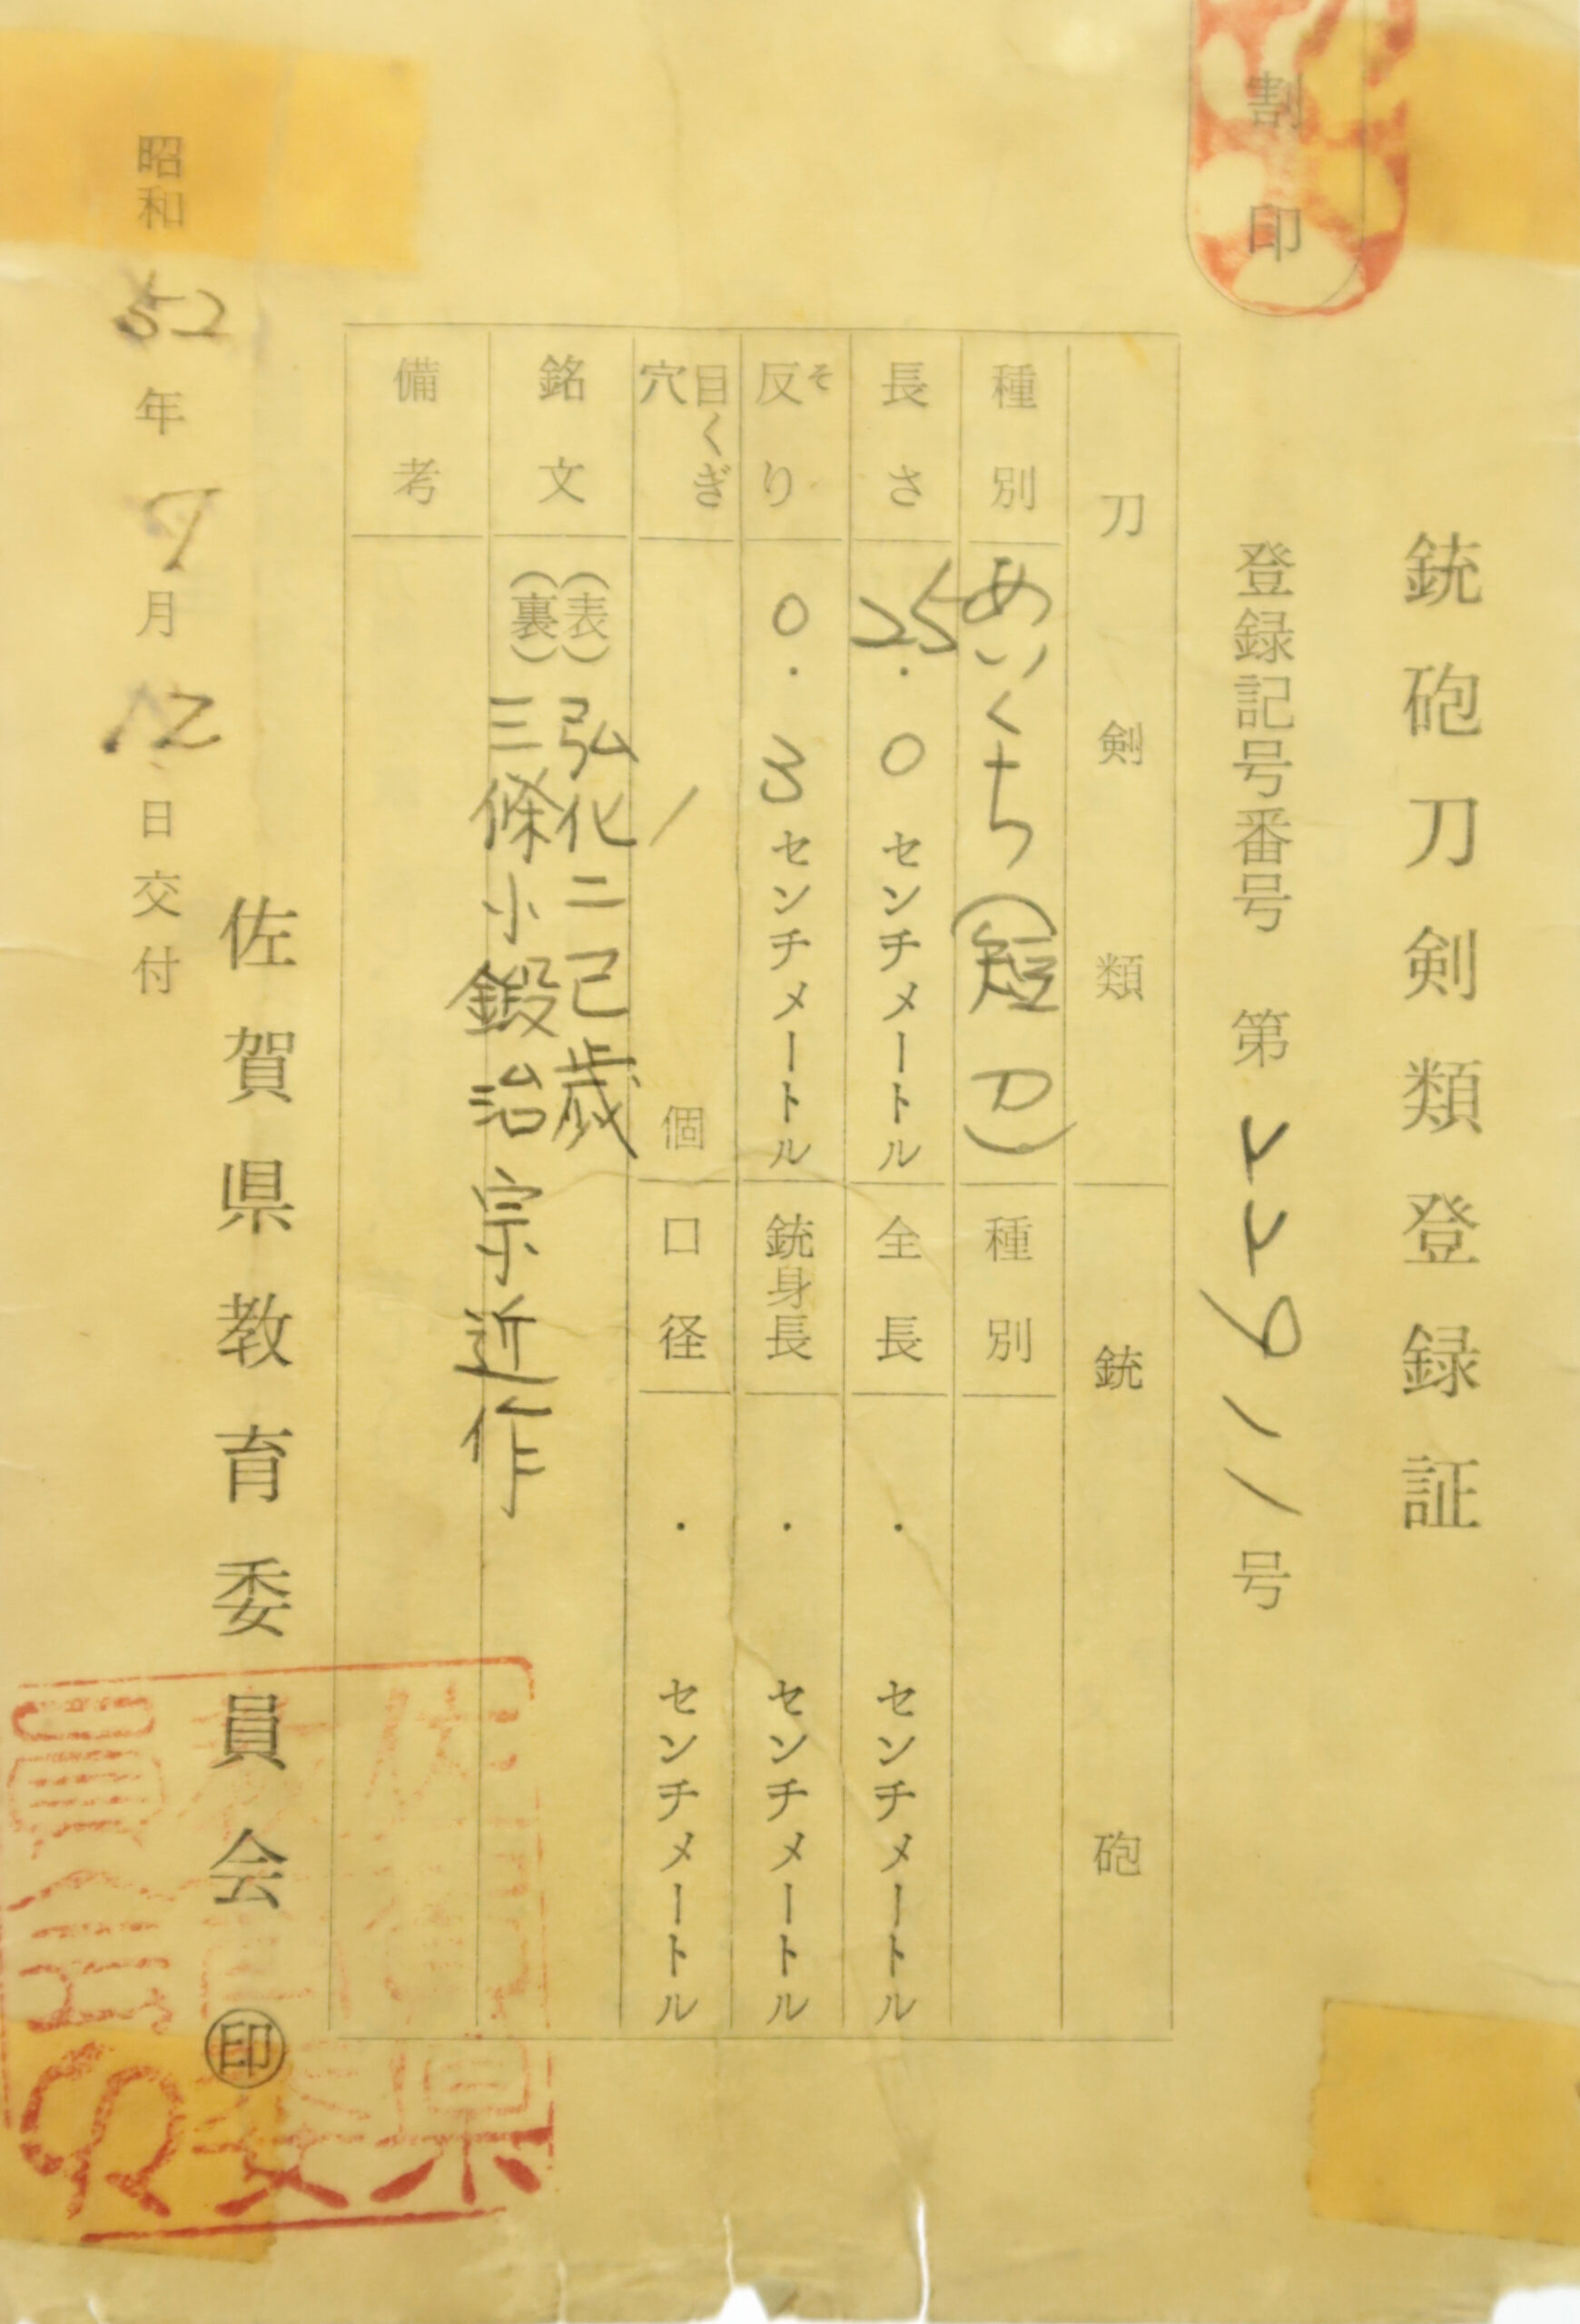 銃砲刀剣類登録証
割印
登録記号番号 第 号
刀剣類 銃砲
種別 あいくち(短刀) 種別
長さ 25.0センチメートル 全長 ・ センチメートル
反り 0.3センチメートル 銃身長 ・ センチメートル
そ
目くぎ穴 1 個 口径 ・ センチメートル
銘文 (表) 弘化二己歳
(裏) 三條小鍛治宗近作
備考
佐賀県教育委員会 ㊞
昭和52年7月12日交付